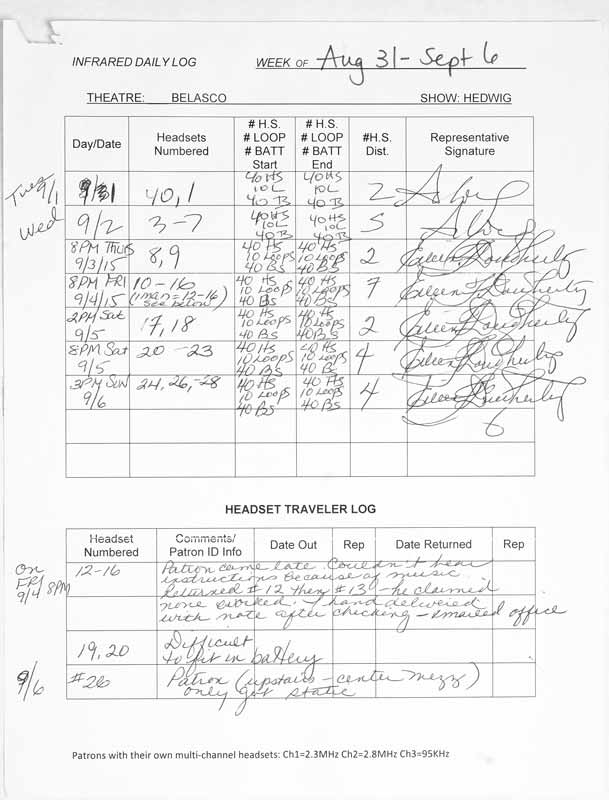 INFRARED DAILY LOG WEEK OF Aug 31 - Sept 6
THEATRE: BELASCO SHOW: HEDWIG
Day/Date Headsets Numbered # H.S. # LOOP # BATT Start # H.S. # LOOP # BATT End #H.S. Dist. Representative Signature
Tues 9/1 40, 1 40 HS 10 L 40 B 40 HS 10 L 40 B 2
Wed 9/2 3-7 40 HS 10 L 40 B 40 HS 10 L 40 B 5
8PM Thurs 9/3/15 8, 9 40 HS 10 Loops 40 BS 40 HS 10 Loops 40 BS 2 Eileen Dougherty
8PM FRI 9/4/15 10-16 (1 man = 12-16) see below 40 HS 10 Loops 40 BS 40 HS 10 Loops 40 BS 7 Eileen Dougherty
2PM Sat 9/5 17, 18 40 HS 10 Loops 40 BS 40 HS 10 Loops 40 BS 2 Eileen Dougherty
8PM Sat 9/5 20 - 23 40 HS 10 Loops 40 BS 40 HS 10 Loops 40 BS 4 Eileen Dougherty
3PM SUN 9/6 24, 26, -28 40 HS 10 Loops 40 BS 40 HS 10 Loops 40 BS 4 Eileen Dougherty
HEADSET TRAVELER LOG
Headset Numbered Comments/ Patron ID Info Date Out Rep Date Returned Rep
On FRI 9/4 8PM 12-16 Patron came late. Couldn't hear
instructions because of music.
Returned #12 then #13 - he claimed
none worked. I hand delivered
with note after checking - emailed office
19, 20 Difficult
to fit in battery
9/6 #26 Patron (upstairs - center mezz)
only got static
Patrons with their own multi-channel headsets: Ch1=2.3MHz Ch2=2.8MHz Ch3=95KHz